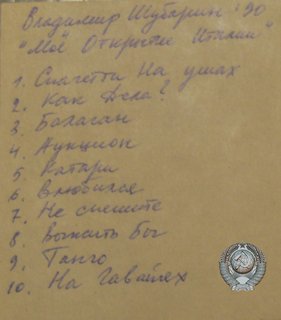 Владимир Шубарин '90
"Моё Открытие Италии"
1. Спагетти На ушах
2. Как Дела?
3. Балаган
4. Аукцион
5. Катари
6. Влюбился
7. Не спешите
8. Выжить бы
9. Танго
10. На Гавайях